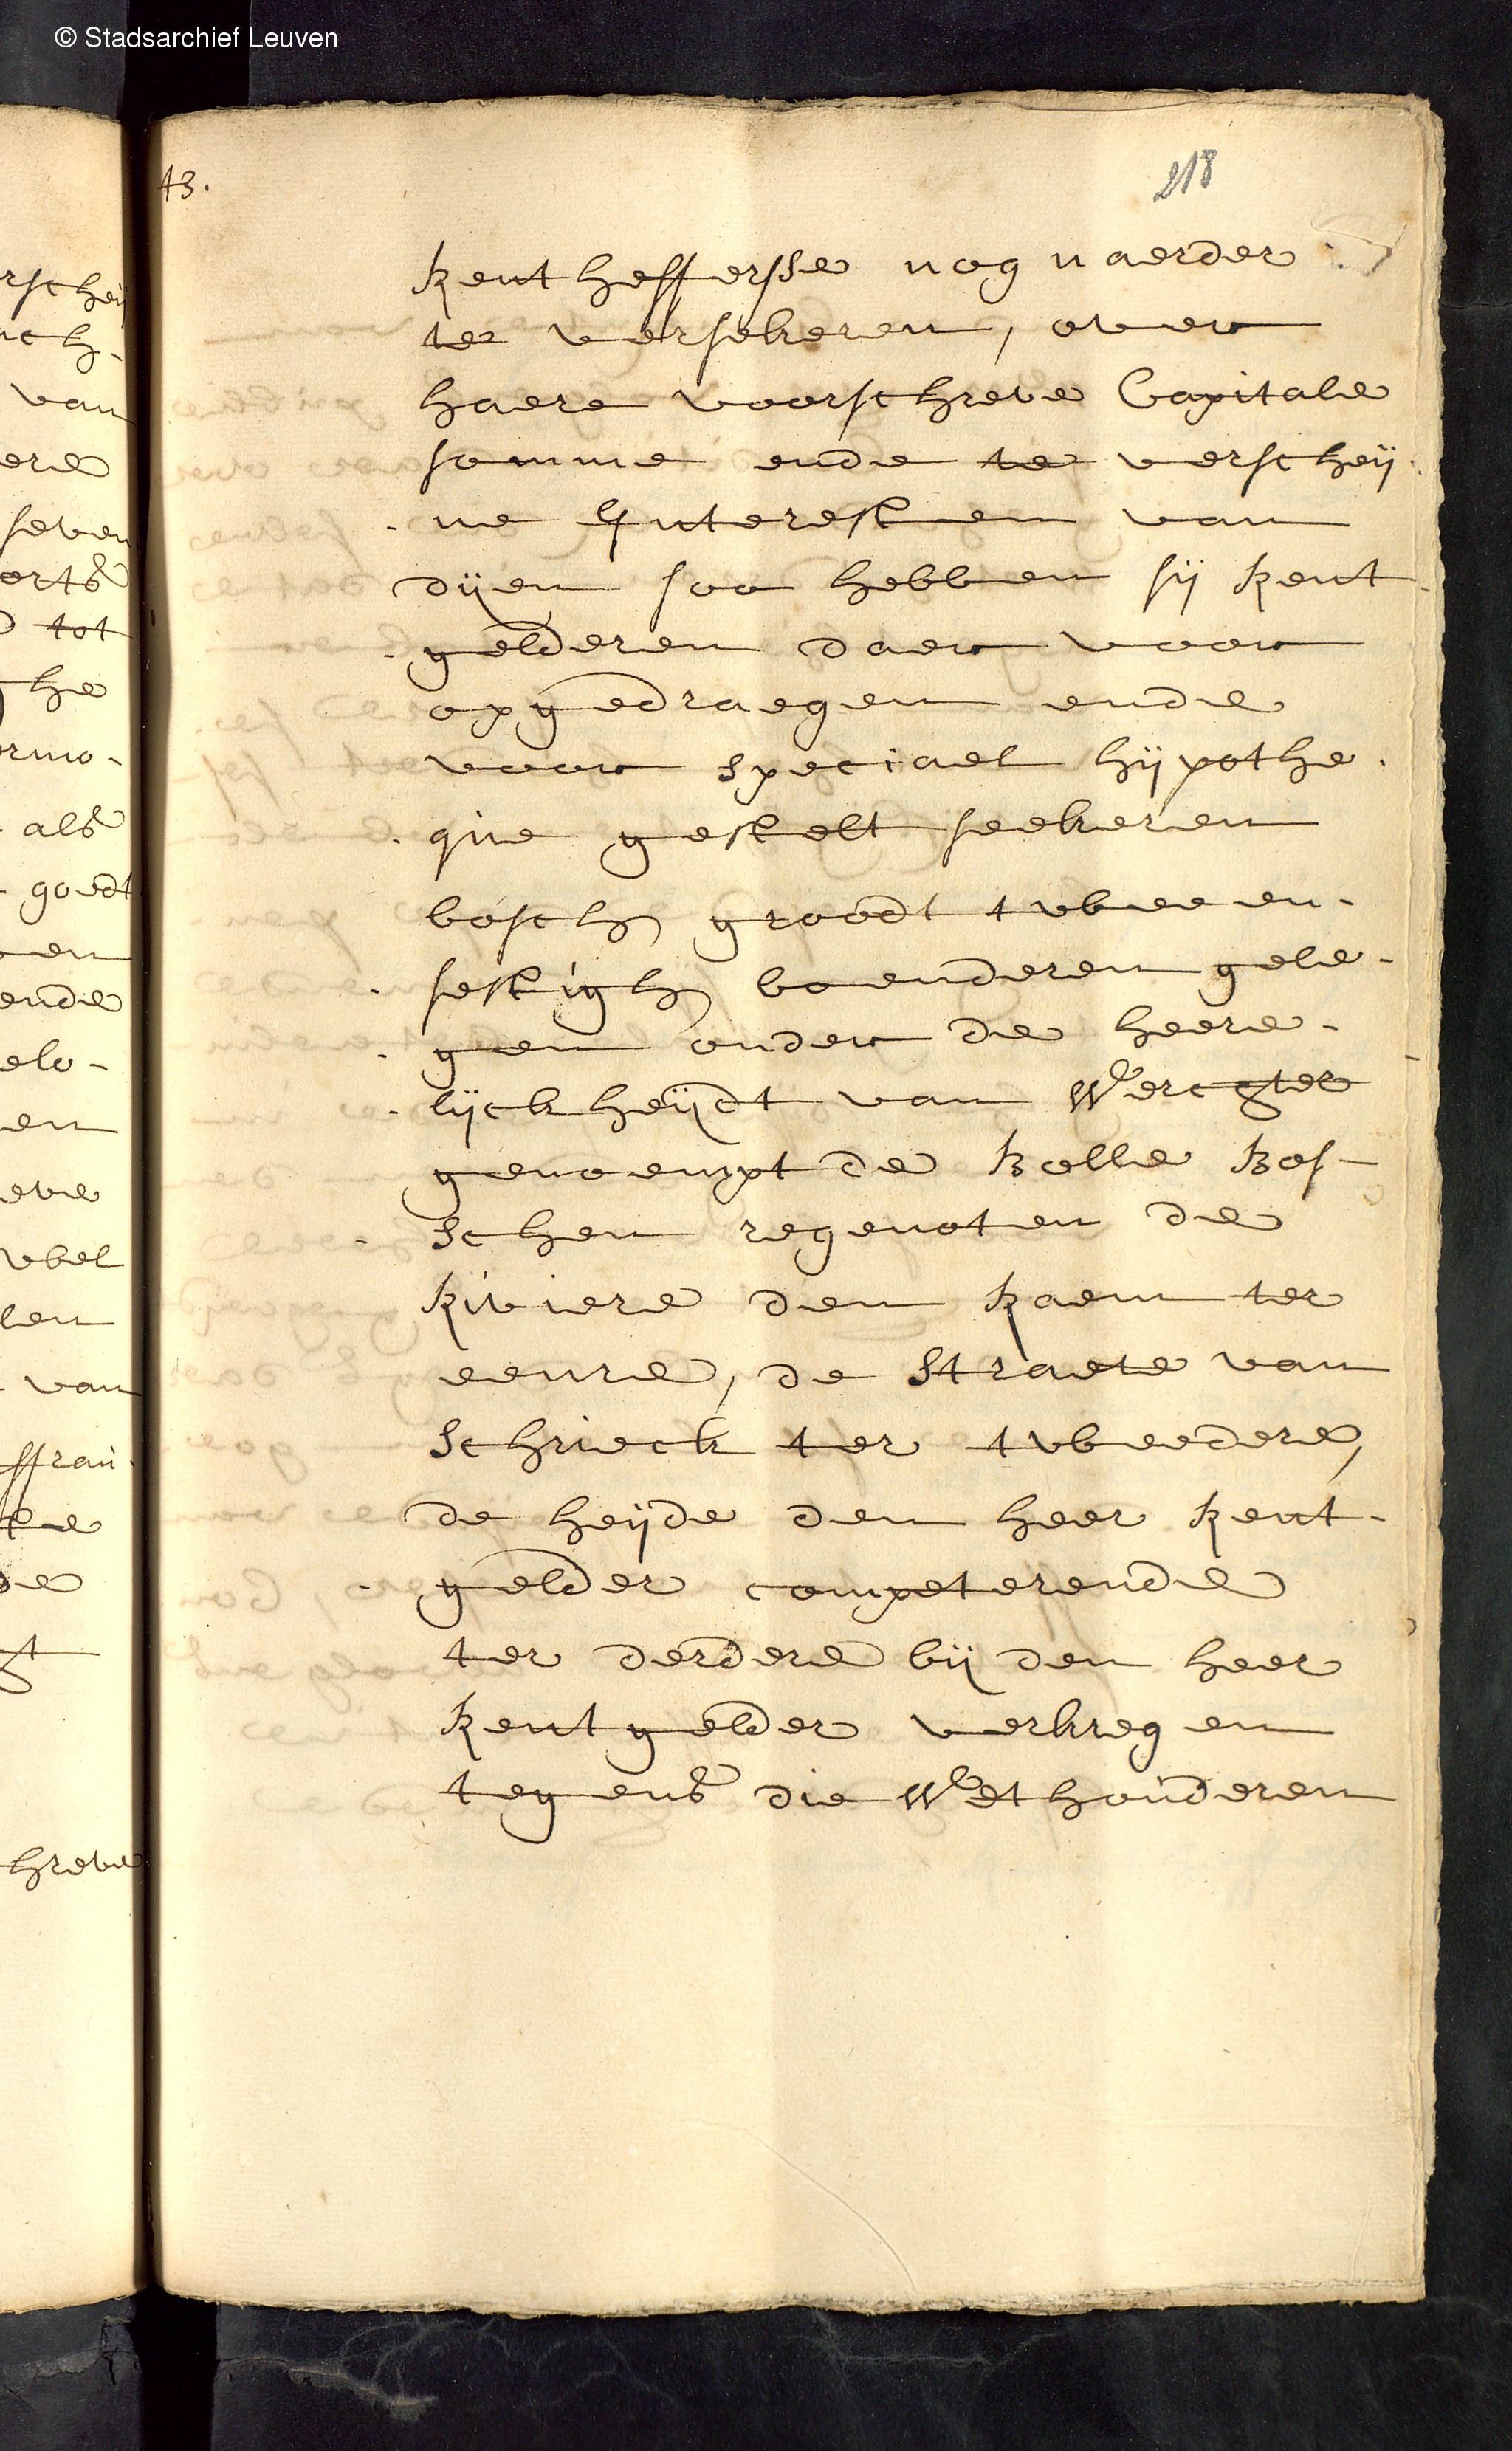 © Stadsarchief Leuven
43.
218
Rentheffersse nog naerder
te versekeren, over
haere voorschreve Capitale
somme ende te verscheij-
-ne Interesten van
dijen soo hebben sij Rent-
-gelderen daer voor
opgedraegen ende
voor speciael hijpothe-
-que gestelt seekeren
bosch groodt tweeen-
-sestigh boenderen gele-
-gen onder de heere-
-lijckheijdt van Wercgter
genoempt de Bolle Bos-
-schen regenoten de
Riviere den Raem ter
eenre, de Straete van
Schrieck ter tweedere,
de heijde den heer Rent-
-gelder competerende
ter derdere bij den heer
Rentgelder verkregen
tegens die Wethouderen
rscheij
ch-
van
ere
seven
orts
tot
he
ormo-
als
goedt
en
ende
elo-
en
eve
wel
len
van
ffrau-
de
hreve